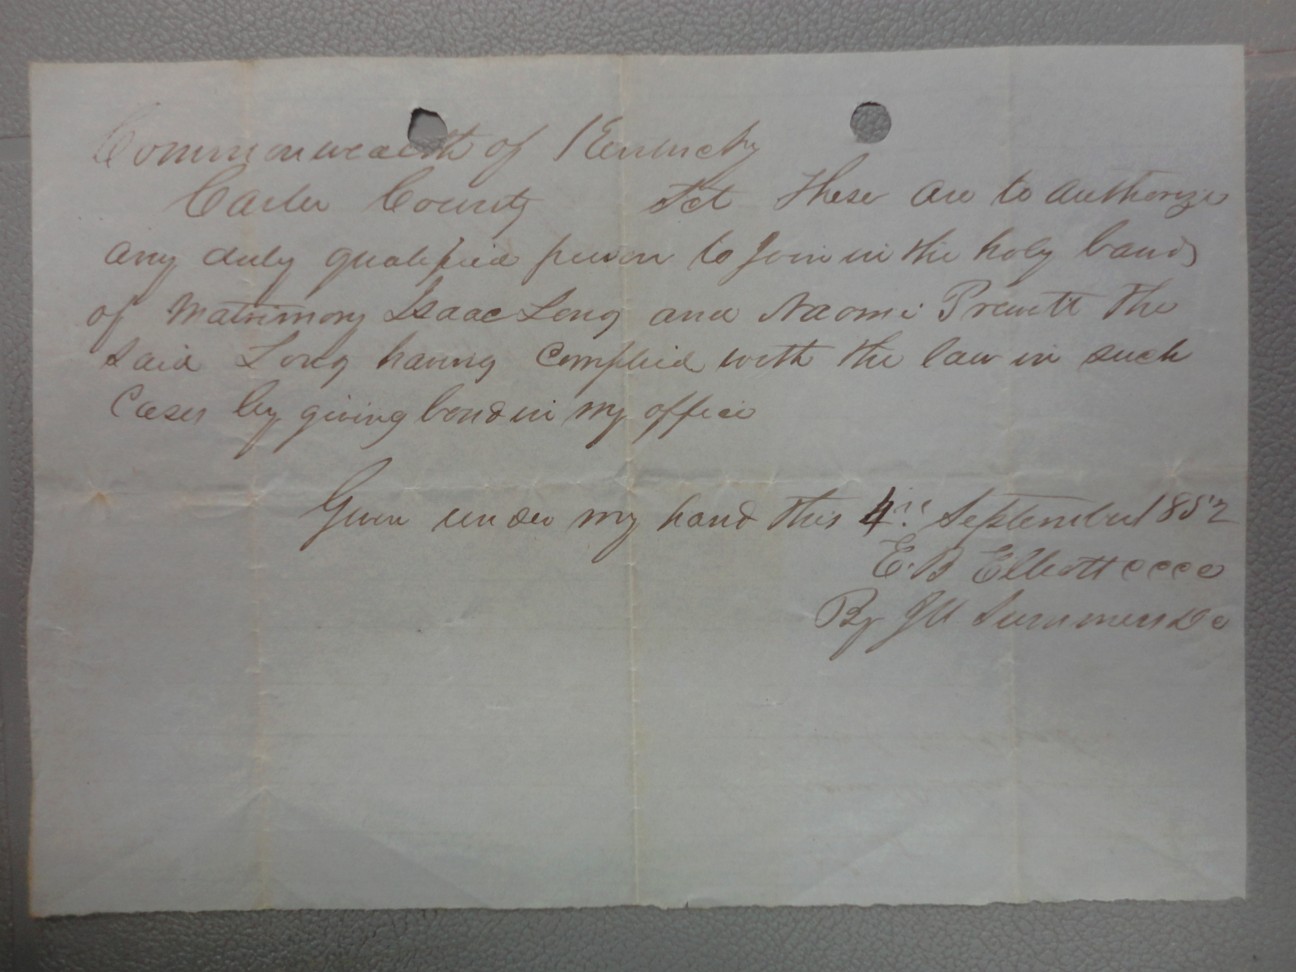 Commonwealth of Kentucky
Carter County Sct These are to authorize
any duly qualified person to Join in the holy bands
of Matrimony Isaac Long and Naomi Prewitt The
said Long having Complied with the law in such
Cases by giving bond in my office
Given under my hand this 4th September 1852
E. B Elliott cccc
By Summers Dc